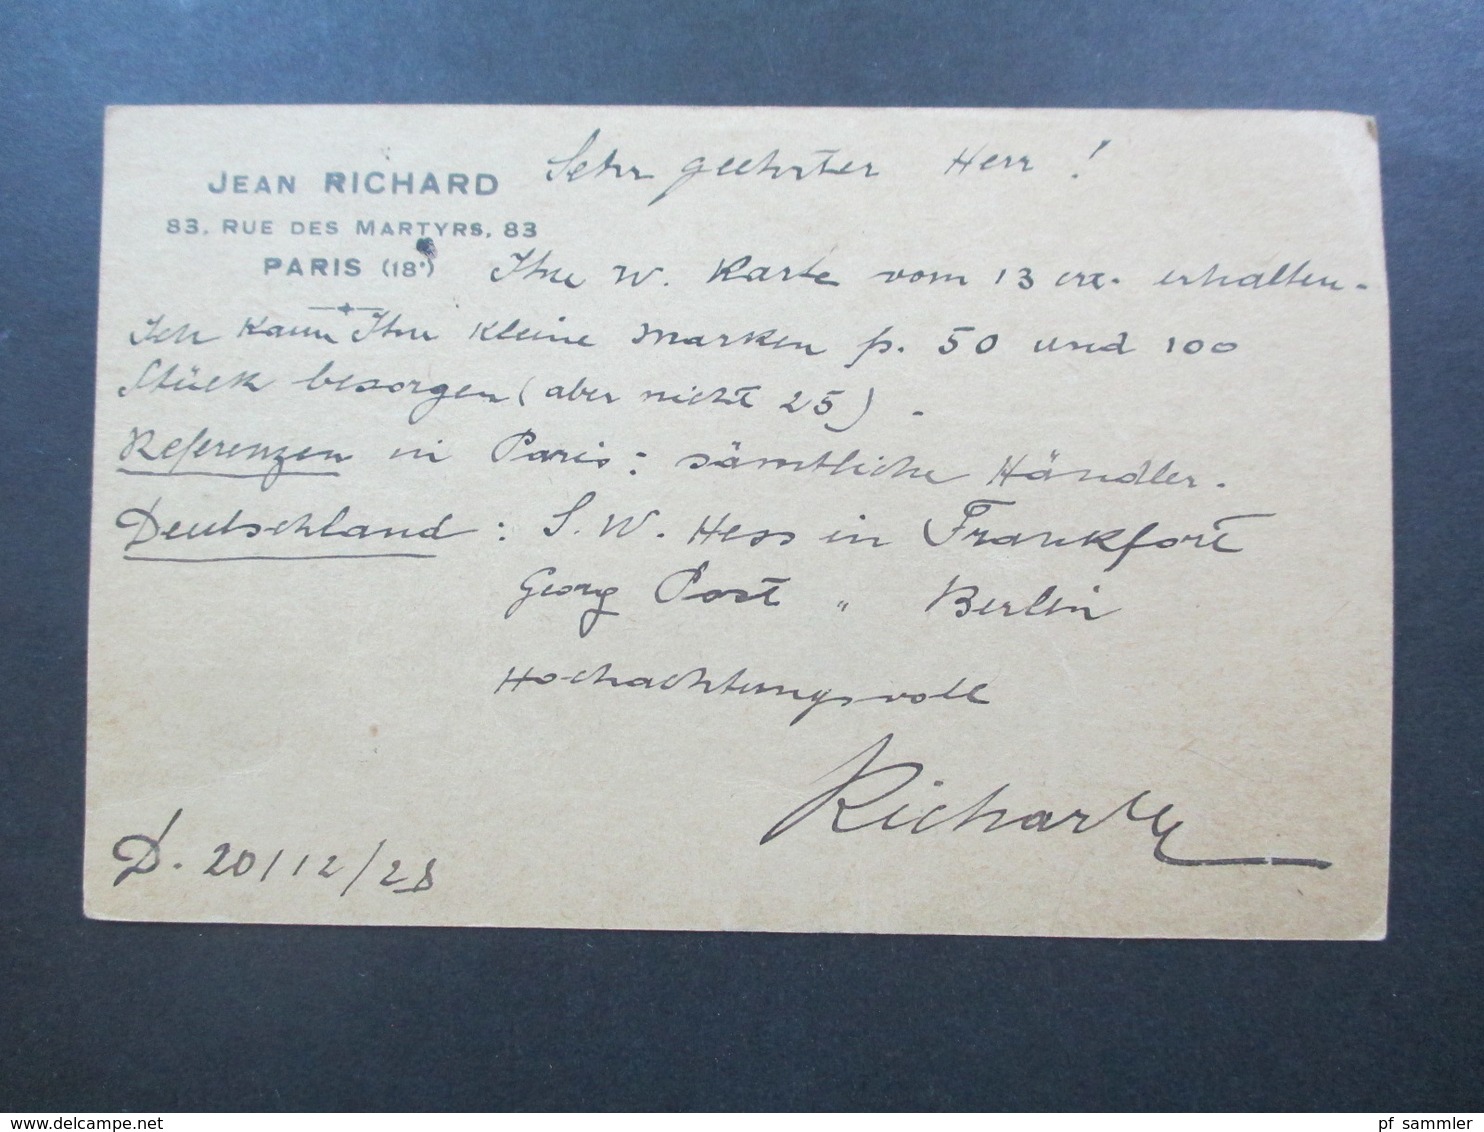 JEAN RICHARD
83, RUE DES MARTYRS, 83
PARIS (18e)
Sehr geehrter Herr!
Ihre w. Karte vom 13 erhalten.
Ich kann Ihn kleine Marken p. 50 und 100
Stück besorgen (aber nicht 25).
Referenzen in Paris: sämtliche Händler.
Deutschland: S. W. Hess in Frankfort
Georg Post " Berlin
Hochachtungsvoll
Richard
D. 20/12/28
www.delcampe.net
pf_sammler